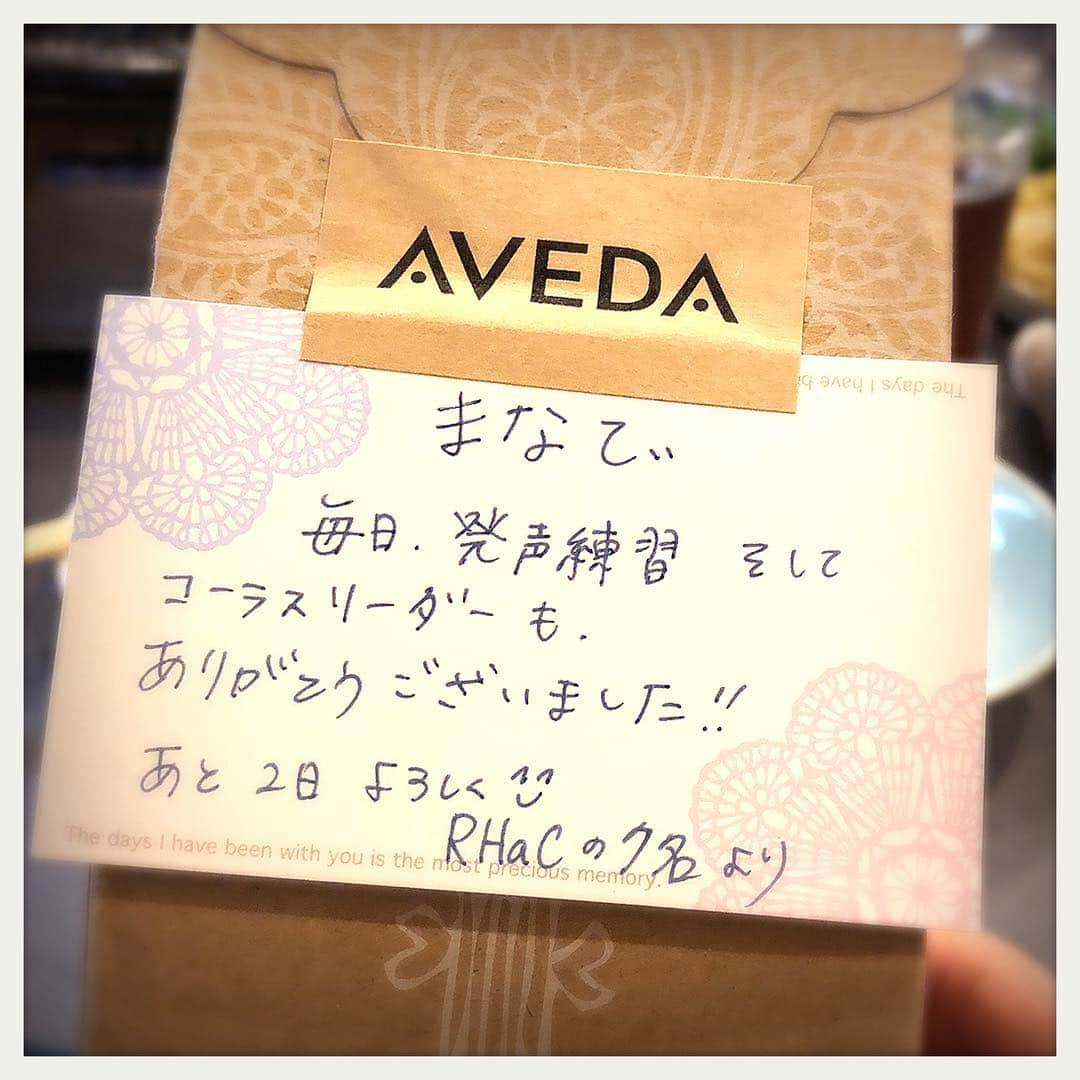 AVEDA
The days I have b
まなてぃ
毎日.発声練習 そして
コーラスリーダーも.
ありがとうございました!!
あと2日 よろしく
RHaCの7名より
The days I have been with you is the most precious memory.